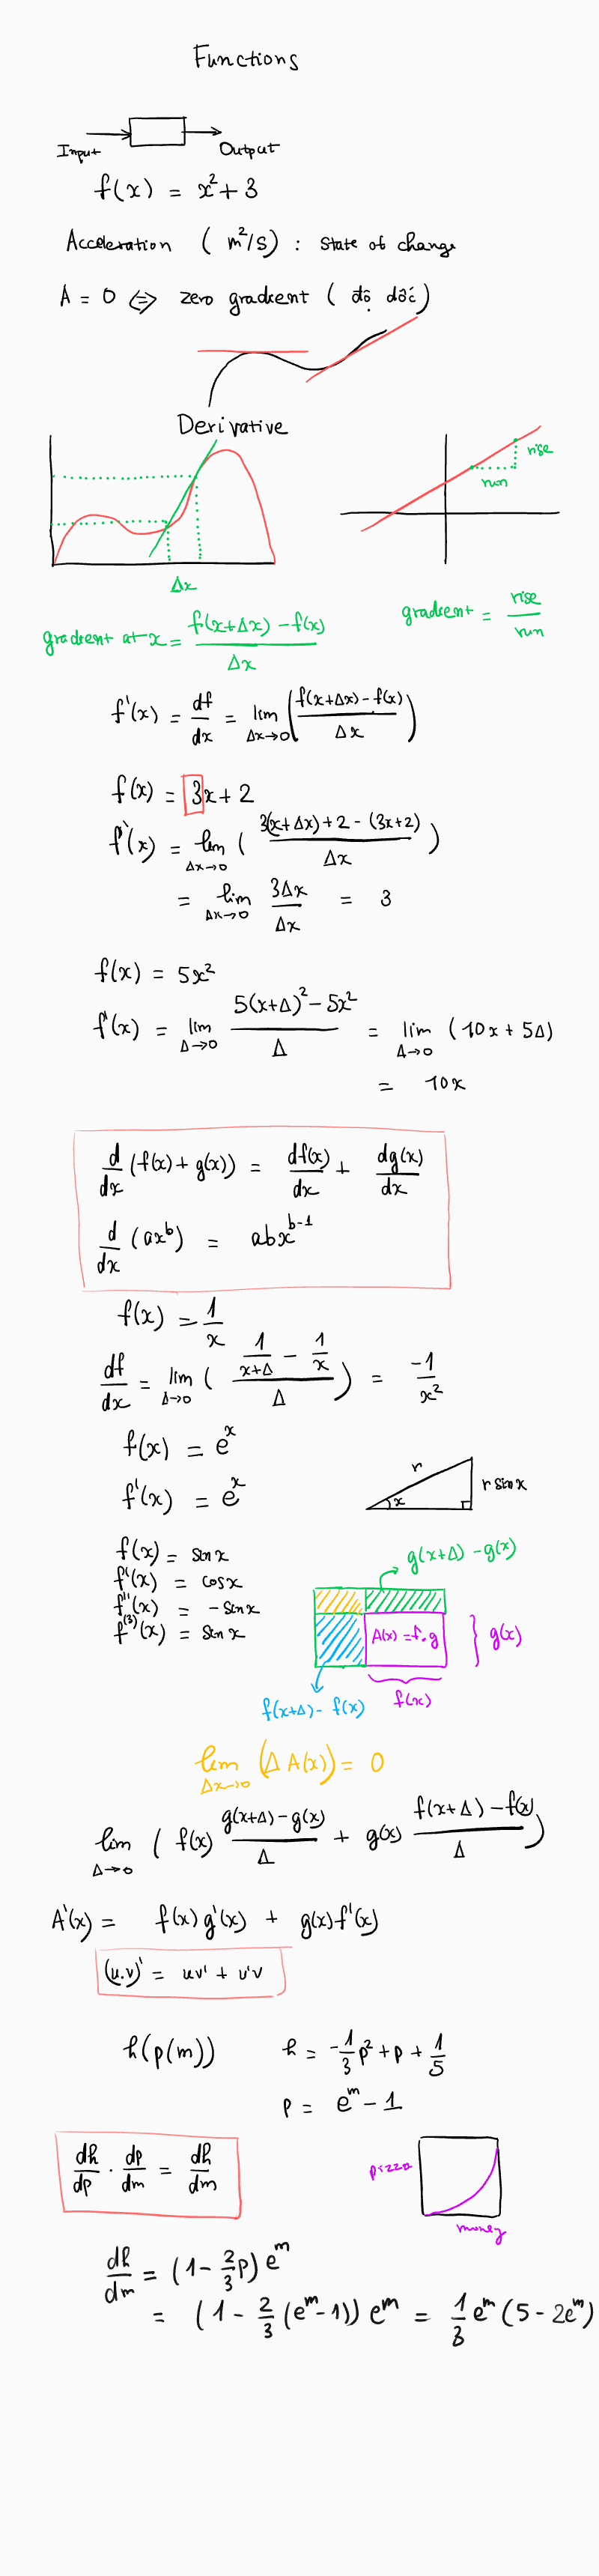 Functions
Input
Output
f(x) = x² + 3
Acceleration (m²/s) : state of change
A = 0 ⇔ zero gradient (độ dốc)
Derivative
rise
run
Δx
gradient = rise/run
gradient at x = (f(x+Δx) - f(x))/Δx
f'(x) = df/dx = lim Δx→0 ((f(x+Δx) - f(x))/Δx)
f(x) = 3x + 2
f'(x) = lim Δx→0 ((3(x+Δx) + 2 - (3x+2))/Δx)
= lim Δx→0 3Δx/Δx = 3
f(x) = 5x²
f'(x) = lim Δ→0 (5(x+Δ)² - 5x²)/Δ = lim Δ→0 (10x + 5Δ)
= 10x
d/dx (f(x) + g(x)) = df(x)/dx + dg(x)/dx
d/dx (ax^b) = abx^(b-1)
f(x) = 1/x
df/dx = lim Δ→0 ((1/(x+Δ) - 1/x)/Δ) = -1/x²
f(x) = e^x
f'(x) = e^x
r
x
r sin x
f(x) = sin x
f'(x) = cos x
f''(x) = - sin x
f^(3)(x) = sin x
g(x+Δ) - g(x)
A(x) = f.g
g(x)
f(x+Δ) - f(x)
f(x)
lim Δx→0 (Δ A(x)) = 0
lim Δ→0 (f(x) (g(x+Δ) - g(x))/Δ + g(x) (f(x+Δ) - f(x))/Δ)
A'(x) = f(x) g'(x) + g(x) f'(x)
(u.v)' = uv' + u'v
h(p(m))
h = -1/3 p² + p + 1/5
p = e^m - 1
dh/dp . dp/dm = dh/dm
pizza
money
dh/dm = (1 - 2/3 p) e^m
= (1 - 2/3 (e^m - 1)) e^m = 1/3 e^m (5 - 2e^m)